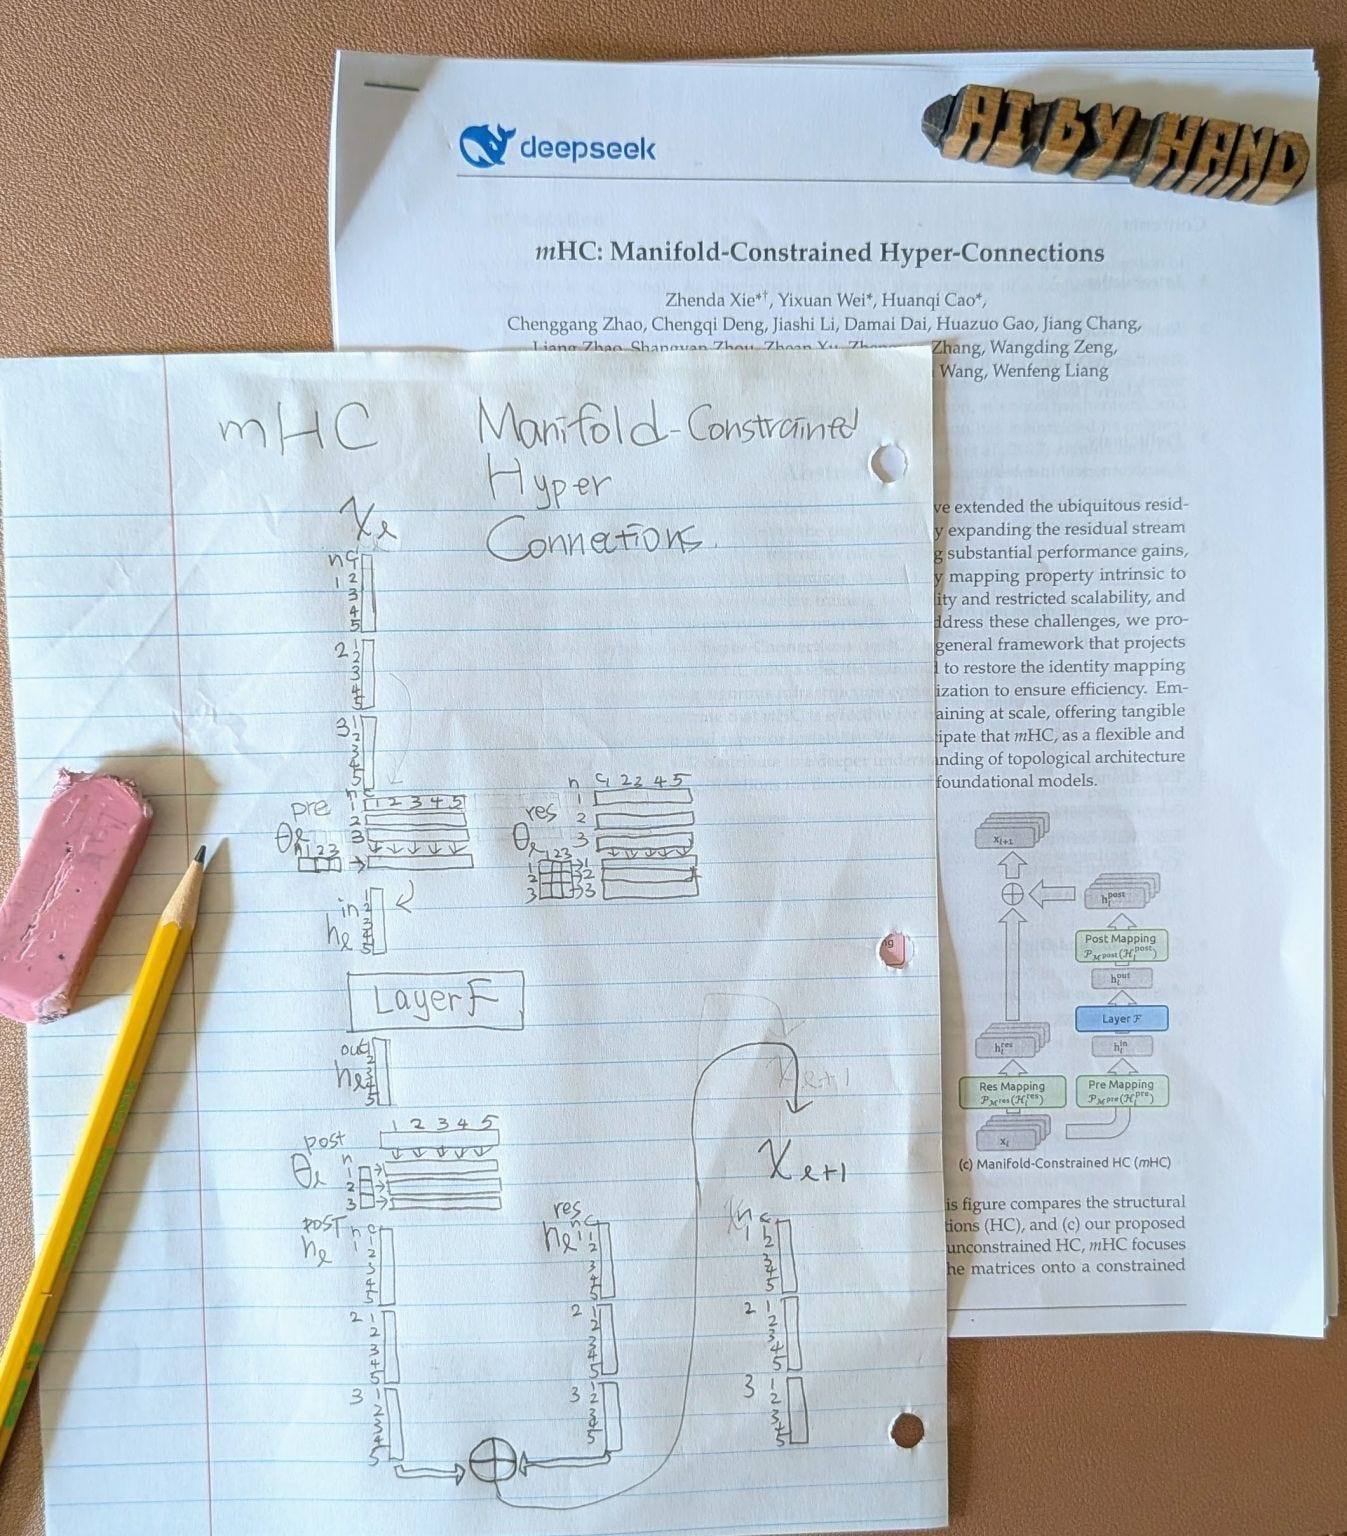 deepseek
AI by HAND
mHC: Manifold-Constrained Hyper-Connections
Zhenda Xie*†, Yixuan Wei*, Huanqi Cao*,
Chenggang Zhao, Chengqi Deng, Jiashi Li, Damai Dai, Huazuo Gao, Jiang Chang,
Liang Zhao, Shangyan Zhou, Zhean Xu, Zhang, Wangding Zeng,
Wang, Wenfeng Liang
ve extended the ubiquitous resid-
y expanding the residual stream
g substantial performance gains,
y mapping property intrinsic to
ity and restricted scalability, and
ddress these challenges, we pro-
general framework that projects
to restore the identity mapping
ization to ensure efficiency. Em-
aining at scale, offering tangible
ipate that mHC, as a flexible and
nding of topological architecture
foundational models.
x_{l+1}
h_l^{post}
Post Mapping
P_{M^{post}}(H_l^{post})
h_l^{out}
Layer F
h_l^{res}
h_l^{in}
Res Mapping
P_{M^{res}}(H_l^{res})
Pre Mapping
P_{M^{pre}}(H_l^{pre})
x_l
(c) Manifold-Constrained HC (mHC)
is figure compares the structural
tions (HC), and (c) our proposed
unconstrained HC, mHC focuses
he matrices onto a constrained
mHC Manifold-Constrained
Hyper
Connections.
X_l
n C
1 1 2 3 4 5
2 1 2 3 4 5
3 1 2 3 4 5
pre
θ_l
n 1 2 3
n C
1 1 2 3 4 5
2
3
res
θ_l
1 2 3
1
2
3
n C 1 2 3 4 5
1
2
3
1
2
3
in
h_l
1
2
3
4
5
Layer F
out
h_l
1
2
3
4
5
post
θ_l
n
1
2
3
1 2 3 4 5
X_{l+1}
X_{l+1}
post
h_l
n C
1 1 2 3 4 5
2 1 2 3 4 5
3 1 2 3 4 5
res
h_l
n C
1 1 2 3 4 5
2 1 2 3 4 5
3 1 2 3 4 5
n C
1 1 2 3 4 5
2 1 2 3 4 5
3 1 2 3 4 5